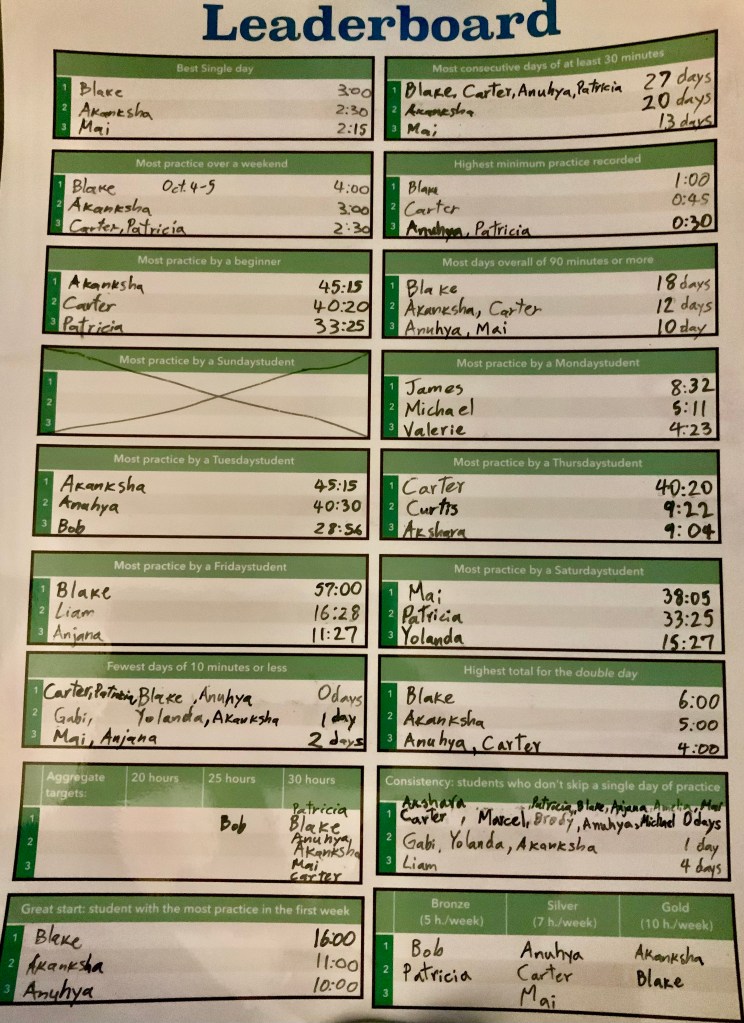 Leaderboard
Best Single day
1 Blake 3:00
2 Akanksha 2:30
3 Mai 2:15
Most consecutive days of at least 30 minutes
1 Blake, Carter, Anuhya, Patricia 27 days
2 Akanksha 20 days
3 Mai 13 days
Most practice over a weekend
1 Blake Oct. 4-5 4:00
2 Akanksha 3:00
3 Carter, Patricia 2:30
Highest minimum practice recorded
1 Blake 1:00
2 Carter 0:45
3 Anuhya, Patricia 0:30
Most practice by a beginner
1 Akanksha 45:15
2 Carter 40:20
3 Patricia 33:25
Most days overall of 90 minutes or more
1 Blake 18 days
2 Akanksha, Carter 12 days
3 Anuhya, Mai 10 day
Most practice by a Sundaystudent
1
2
3
Most practice by a Mondaystudent
1 James 8:32
2 Michael 5:11
3 Valerie 4:23
Most practice by a Tuesdaystudent
1 Akanksha 45:15
2 Anuhya 40:30
3 Bob 28:56
Most practice by a Thursdaystudent
1 Carter 40:20
2 Curtis 9:22
3 Akshara 9:04
Most practice by a Fridaystudent
1 Blake 57:00
2 Liam 16:28
3 Anjana 11:27
Most practice by a Saturdaystudent
1 Mai 38:05
2 Patricia 33:25
3 Yolanda 15:27
Fewest days of 10 minutes or less
1 Carter, Patricia, Blake, Anuhya 0 days
2 Gabi, Yolanda, Akanksha 1 day
3 Mai, Anjana 2 days
Highest total for the double day
1 Blake 6:00
2 Akanksha 5:00
3 Anuhya, Carter 4:00
Aggregate targets: 20 hours 25 hours 30 hours
Patricia
1 Bob Blake
Anuhya
2 Akanksha
3 Mai
Carter
Consistency: students who don't skip a single day of practice
Akshara Patricia, Blake, Anjana, Amelia, Mai
1 Carter, Marcel, Brody, Anuhya, Michael 0 days
2 Gabi, Yolanda, Akanksha 1 day
3 Liam 4 days
Great start: student with the most practice in the first week
1 Blake 16:00
2 Akanksha 11:00
3 Anuhya 10:00
Bronze Silver Gold
(5 h./week) (7 h./week) (10 h./week)
1 Bob Anuhya Akanksha
2 Patricia Carter Blake
3 Mai